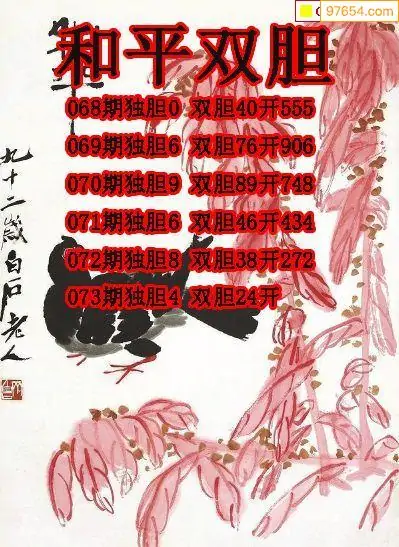 97654.com
和平双胆
068期独胆0 双胆40开555
069期独胆6 双胆76开906
070期独胆9 双胆89开748
071期独胆6 双胆46开434
072期独胆8 双胆38开272
073期独胆4 双胆24开
九十二岁白石老人